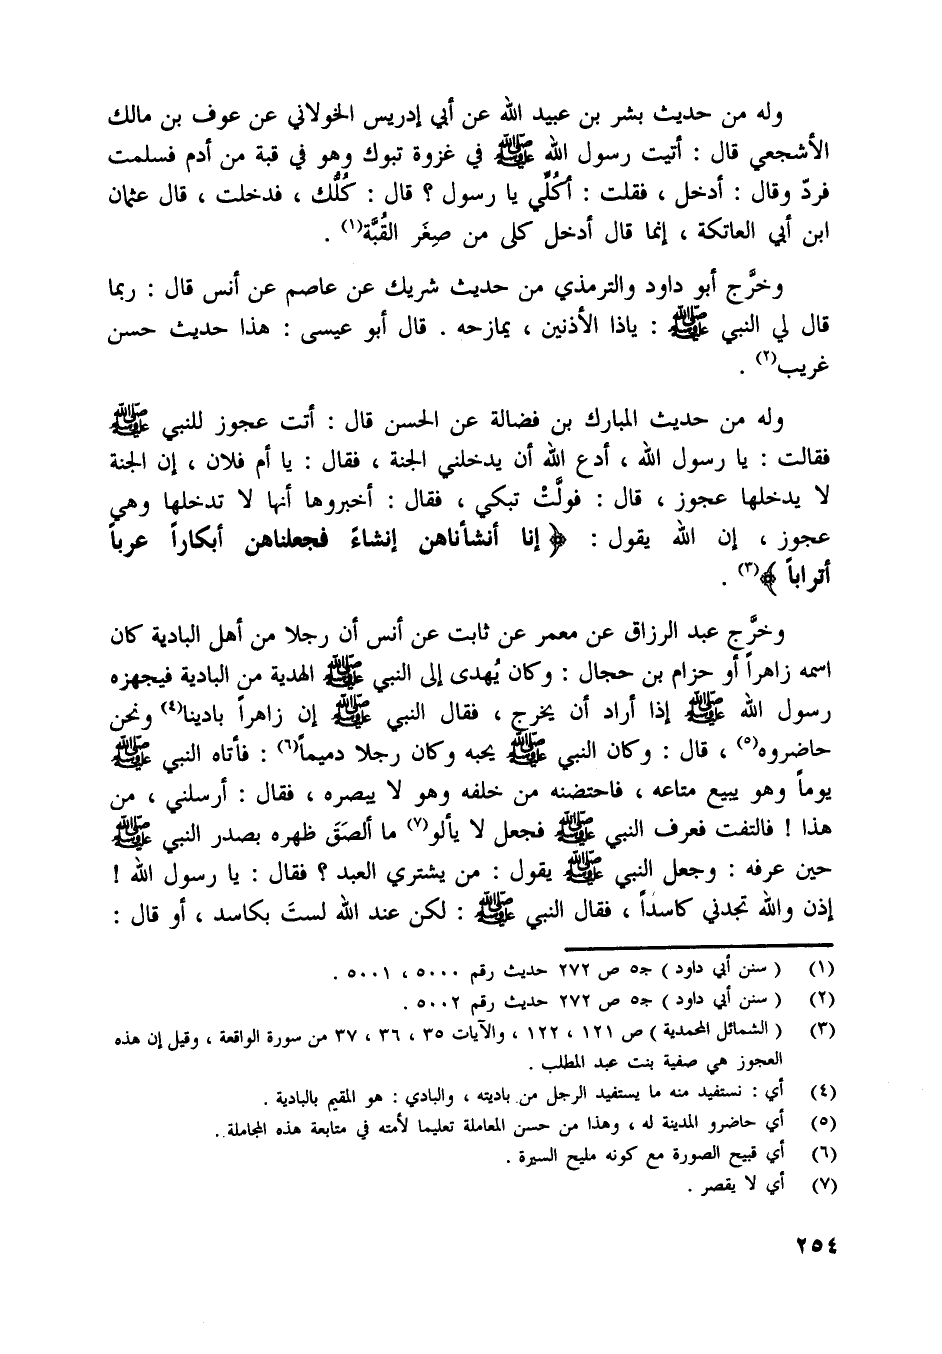 وله من حديث بشر بن عبيد الله عن أبي إدريس الخولاني عن عوف بن مالك
الأشجعي قال : أتيت رسول الله ﷺ في غزوة تبوك وهو في قبة من أدم فسلمت
فردّ وقال : أدخل ، فقلت : أكُلِّي يا رسول ؟ قال : كُلُّك ، فدخلت ، قال عثمان
ابن أبي العاتكة ، إنما قال أدخل كلى من صِغَر القُبَّة(١) .
وخرَّج أبو داود والترمذي من حديث شريك عن عاصم عن أنس قال : ربما
قال لي النبي ﷺ : ياذا الأذنين ، يمازحه . قال أبو عيسى : هذا حديث حسن
غريب(٢) .
وله من حديث المبارك بن فضالة عن الحسن قال : أتت عجوز للنبي ﷺ
فقالت : يا رسول الله ، أدع الله أن يدخلني الجنة ، فقال : يا أم فلان ، إن الجنة
لا يدخلها عجوز ، قال : فولَّتْ تبكي ، فقال : أخبروها أنها لا تدخلها وهي
عجوز ، إن الله يقول : ﴿ إنا أنشأناهن إنشاءً فجعلناهن أبكاراً عرباً
أتراباً ﴾(٣) .
وخرَّج عبد الرزاق عن معمر عن ثابت عن أنس أن رجلا من أهل البادية كان
اسمه زاهراً أو حزام بن حجال : وكان يُهدى إلى النبي ﷺ الهدية من البادية فيجهزه
رسول الله ﷺ إذا أراد أن يخرج ، فقال النبي ﷺ إن زاهراً بادينا(٤) ونحن
حاضروه(٥) ، قال : وكان النبي ﷺ يحبه وكان رجلا دميماً(٦) : فأتاه النبي ﷺ
يوماً وهو يبيع متاعه ، فاحتضنه من خلفه وهو لا يبصره ، فقال : أرسلني ، من
هذا ! فالتفت فعرف النبي ﷺ فجعل لا يألو(٧) ما ألصَقَ ظهره بصدر النبي ﷺ
حين عرفه : وجعل النبي ﷺ يقول : من يشتري العبد ؟ فقال : يا رسول الله !
إذن والله تجدني كاسداً ، فقال النبي ﷺ : لكن عند الله لستَ بكاسد ، أو قال :
(١) ( سنن أبي داود ) جـ٥ ص ٢٧٢ حديث رقم ٥٠٠٠ ، ٥٠٠١ .
(٢) ( سنن أبي داود ) جـ٥ ص ٢٧٢ حديث رقم ٥٠٠٢ .
(٣) ( الشمائل المحمدية ) ص ١٢١ ، ١٢٢ ، والآيات ٣٥ ، ٣٦ ، ٣٧ من سورة الواقعة ، وقيل إن هذه
العجوز هي صفية بنت عبد المطلب .
(٤) أي : نستفيد منه ما يستفيد الرجل من باديته ، والبادي : هو المقيم بالبادية .
(٥) أي حاضرو المدينة له ، وهذا من حسن المعاملة تعليما لأمته في متابعة هذه المجاملة .
(٦) أي قبيح الصورة مع كونه مليح السيرة .
(٧) أي لا يقصر .
٢٥٤